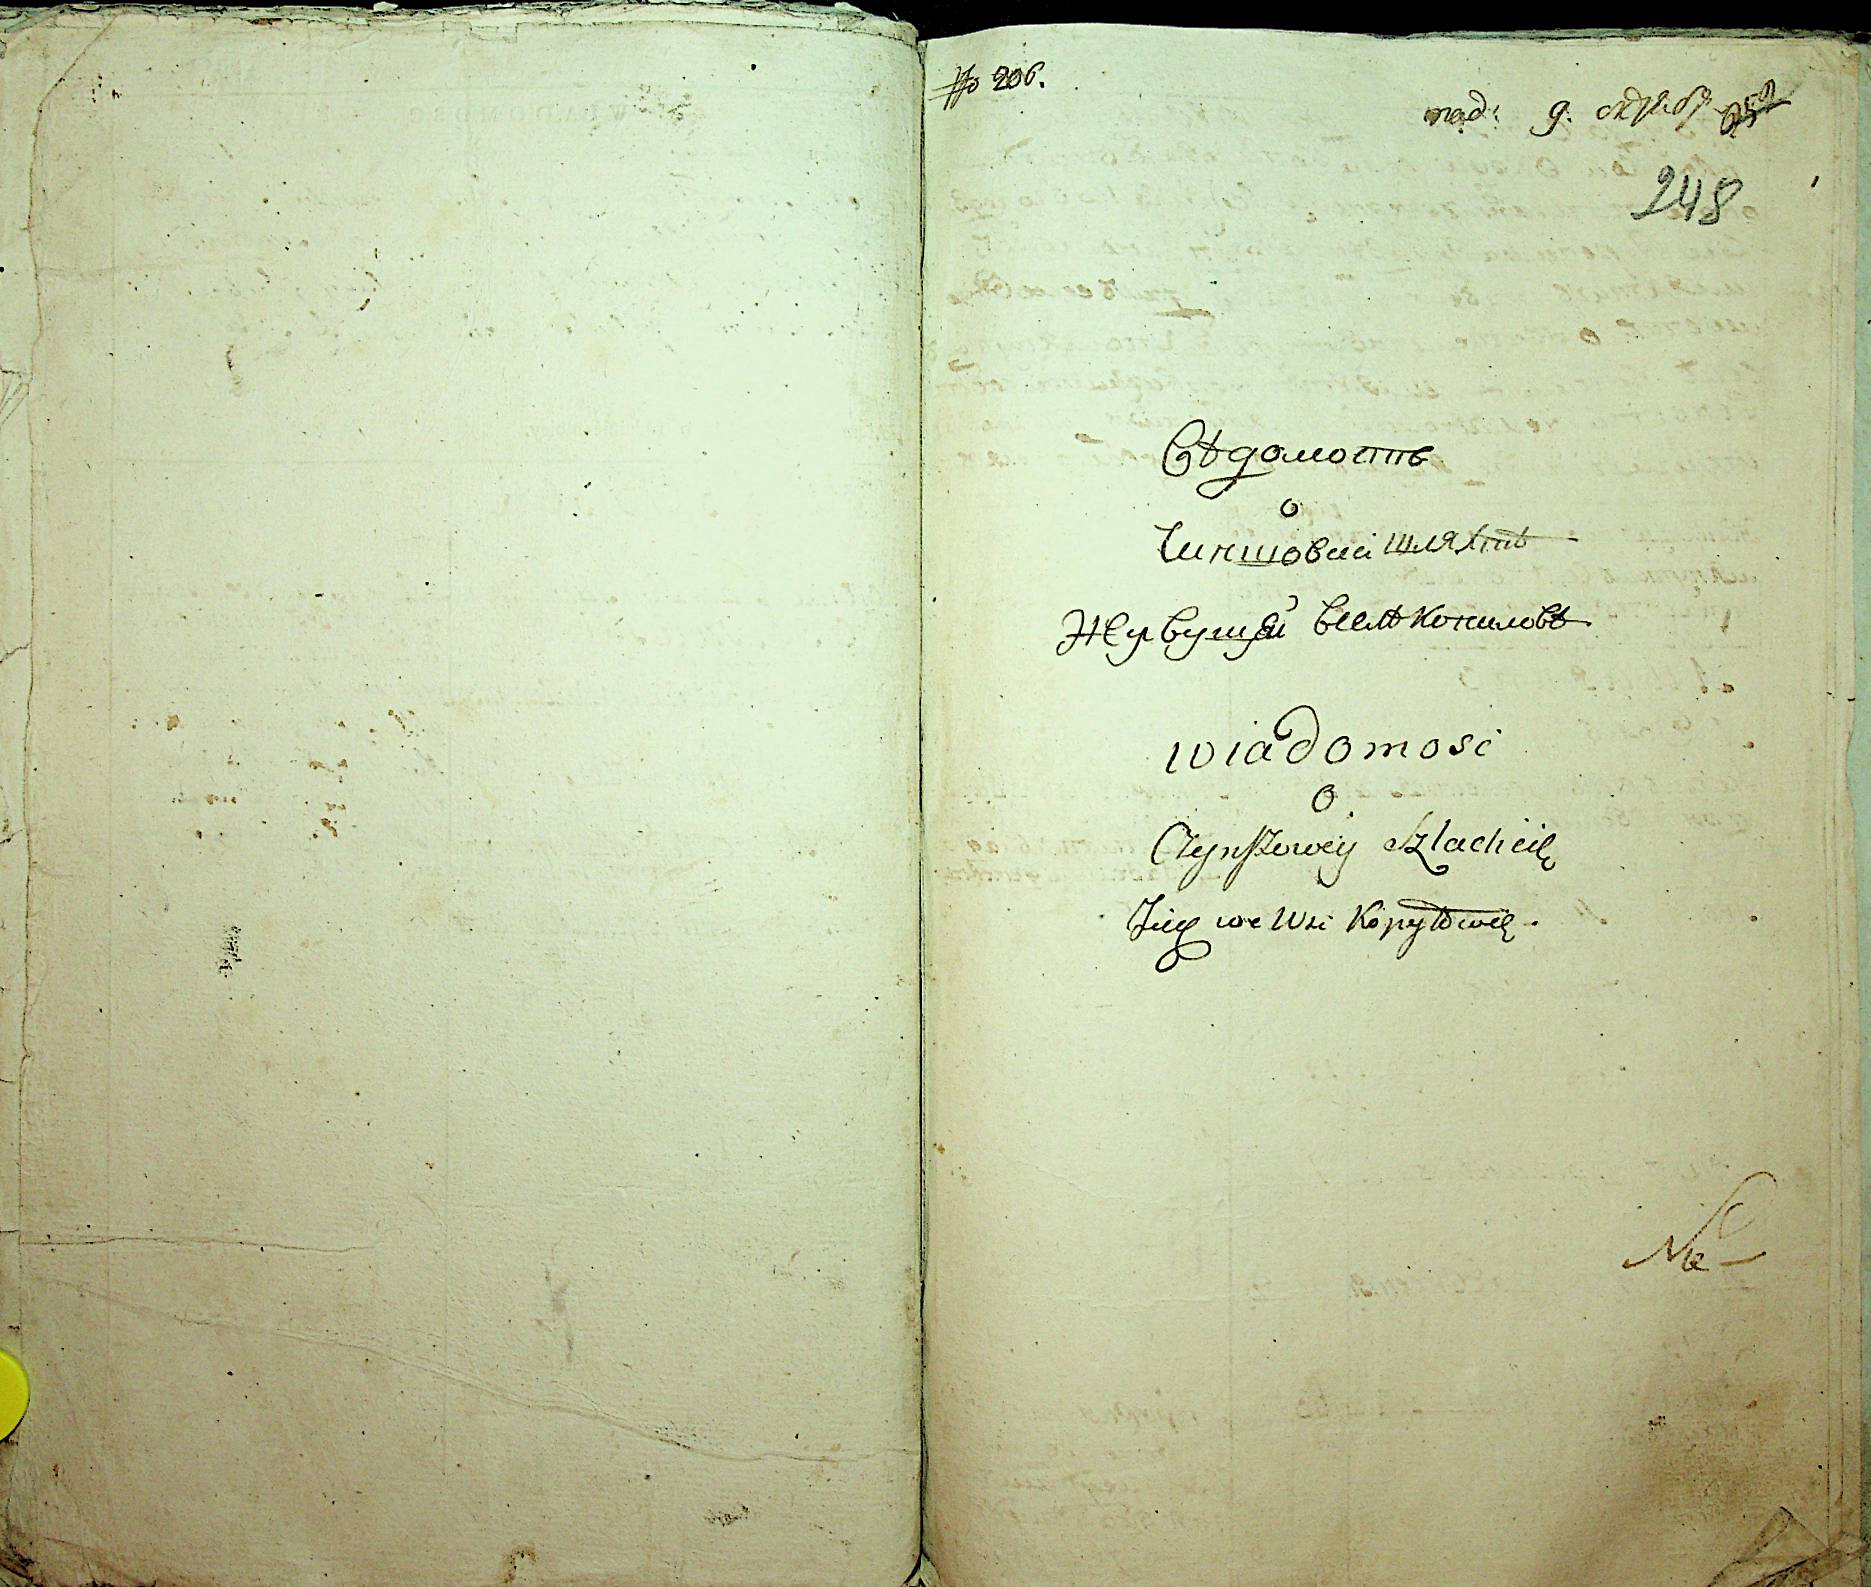 No 206.
над: 9. октября
248
Вѣдомость
о
Чиншовой шляхтѣ
Живущей вселѣ Копиловѣ
wiadomosć
O
Czynszowey Szlachcie
we Wsi Kopyłowie.